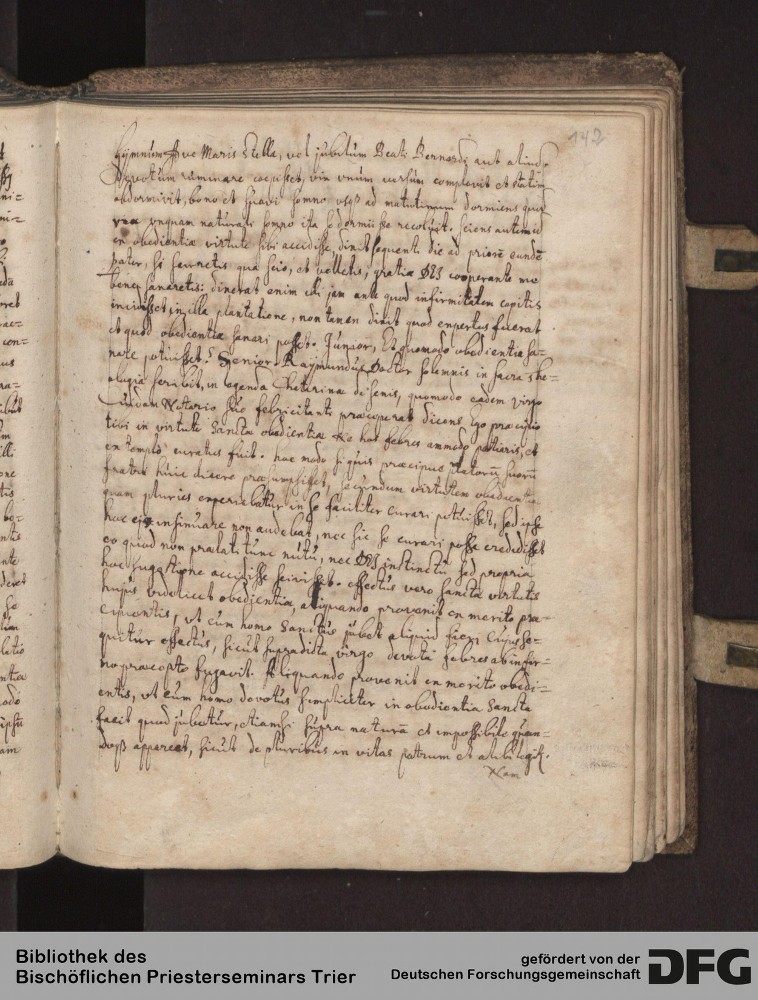 142
hÿmnum Ave Maris Stella, vel jubilum Beati Bernardi aut aliud
devotum ruminare coepisset, vix unum versum complevit et statim
obdormivit, bono et suavi somno usqȝ ad matutinum dormiens quod
vix unquam naturali somno ita se dormiisse recoluit. sciens autem
ex obedientiæ virtute sibi accidisse, dixit sequenti die ad priorē eundē
pater, si sciretis quæ scio, et velletis, gratia DEI cooperante me
bene sanaretis: dixerat enim illi jam ante quod infirmitatem capitis
incidisset in illa plantatione, non tamen dixit quod expertus fuerat
et quod obedientia sanari posset. Junior, Et quomodo obedientia sa=
nare potuisset? Senior. Raÿmundus Doctor solemnis in sacra the=
ologia scribit, in legenda Catharinæ de senis, quomodo eadem virgo
cuidam Notario sic febricitanti præceperat dicens Ego præcipio
tibi in virtute sanctæ obedientiæ ne has febres ammodo patiaris, et
ex templo curatus fuit. hoc modo si quis præcipue Prælatorū suorū
fratri huic dicere præsumpsisset, secundum virtutem obedientiæ
quam pluries experiebatur in se faciliter curari potuisset, sed ipse
hoc eis insinuare non audebat, nec sic se curari posse credidisset
eo quod non prælati tunc nutu, nec DEI instinctu sed propria
hoc sugestione accidisse scivisset. effectus vero sanctæ virtutis
hujus videlicet obedientiæ, aliquando provenit ex merito præ=
cipientis, ut cum homo Sanctus jubet aliquid fieri cujus se=
quitur effectus, sicut supradicta virgo devota febres ab infir=
mo præcepto fugavit. Aliquando provenit ex merito obedi=
entis, ut cum homo devotus simpliciter in obedientia Sancta
facit quod jubetur, etiamsi supra naturā et impossibile quan=
doqȝ appareat, sicut de pluribus in vitas patrum et alibi legit.
Nam
Bibliothek des
Bischöflichen Priesterseminars Trier
gefördert von der
Deutschen Forschungsgemeinschaft
DFG